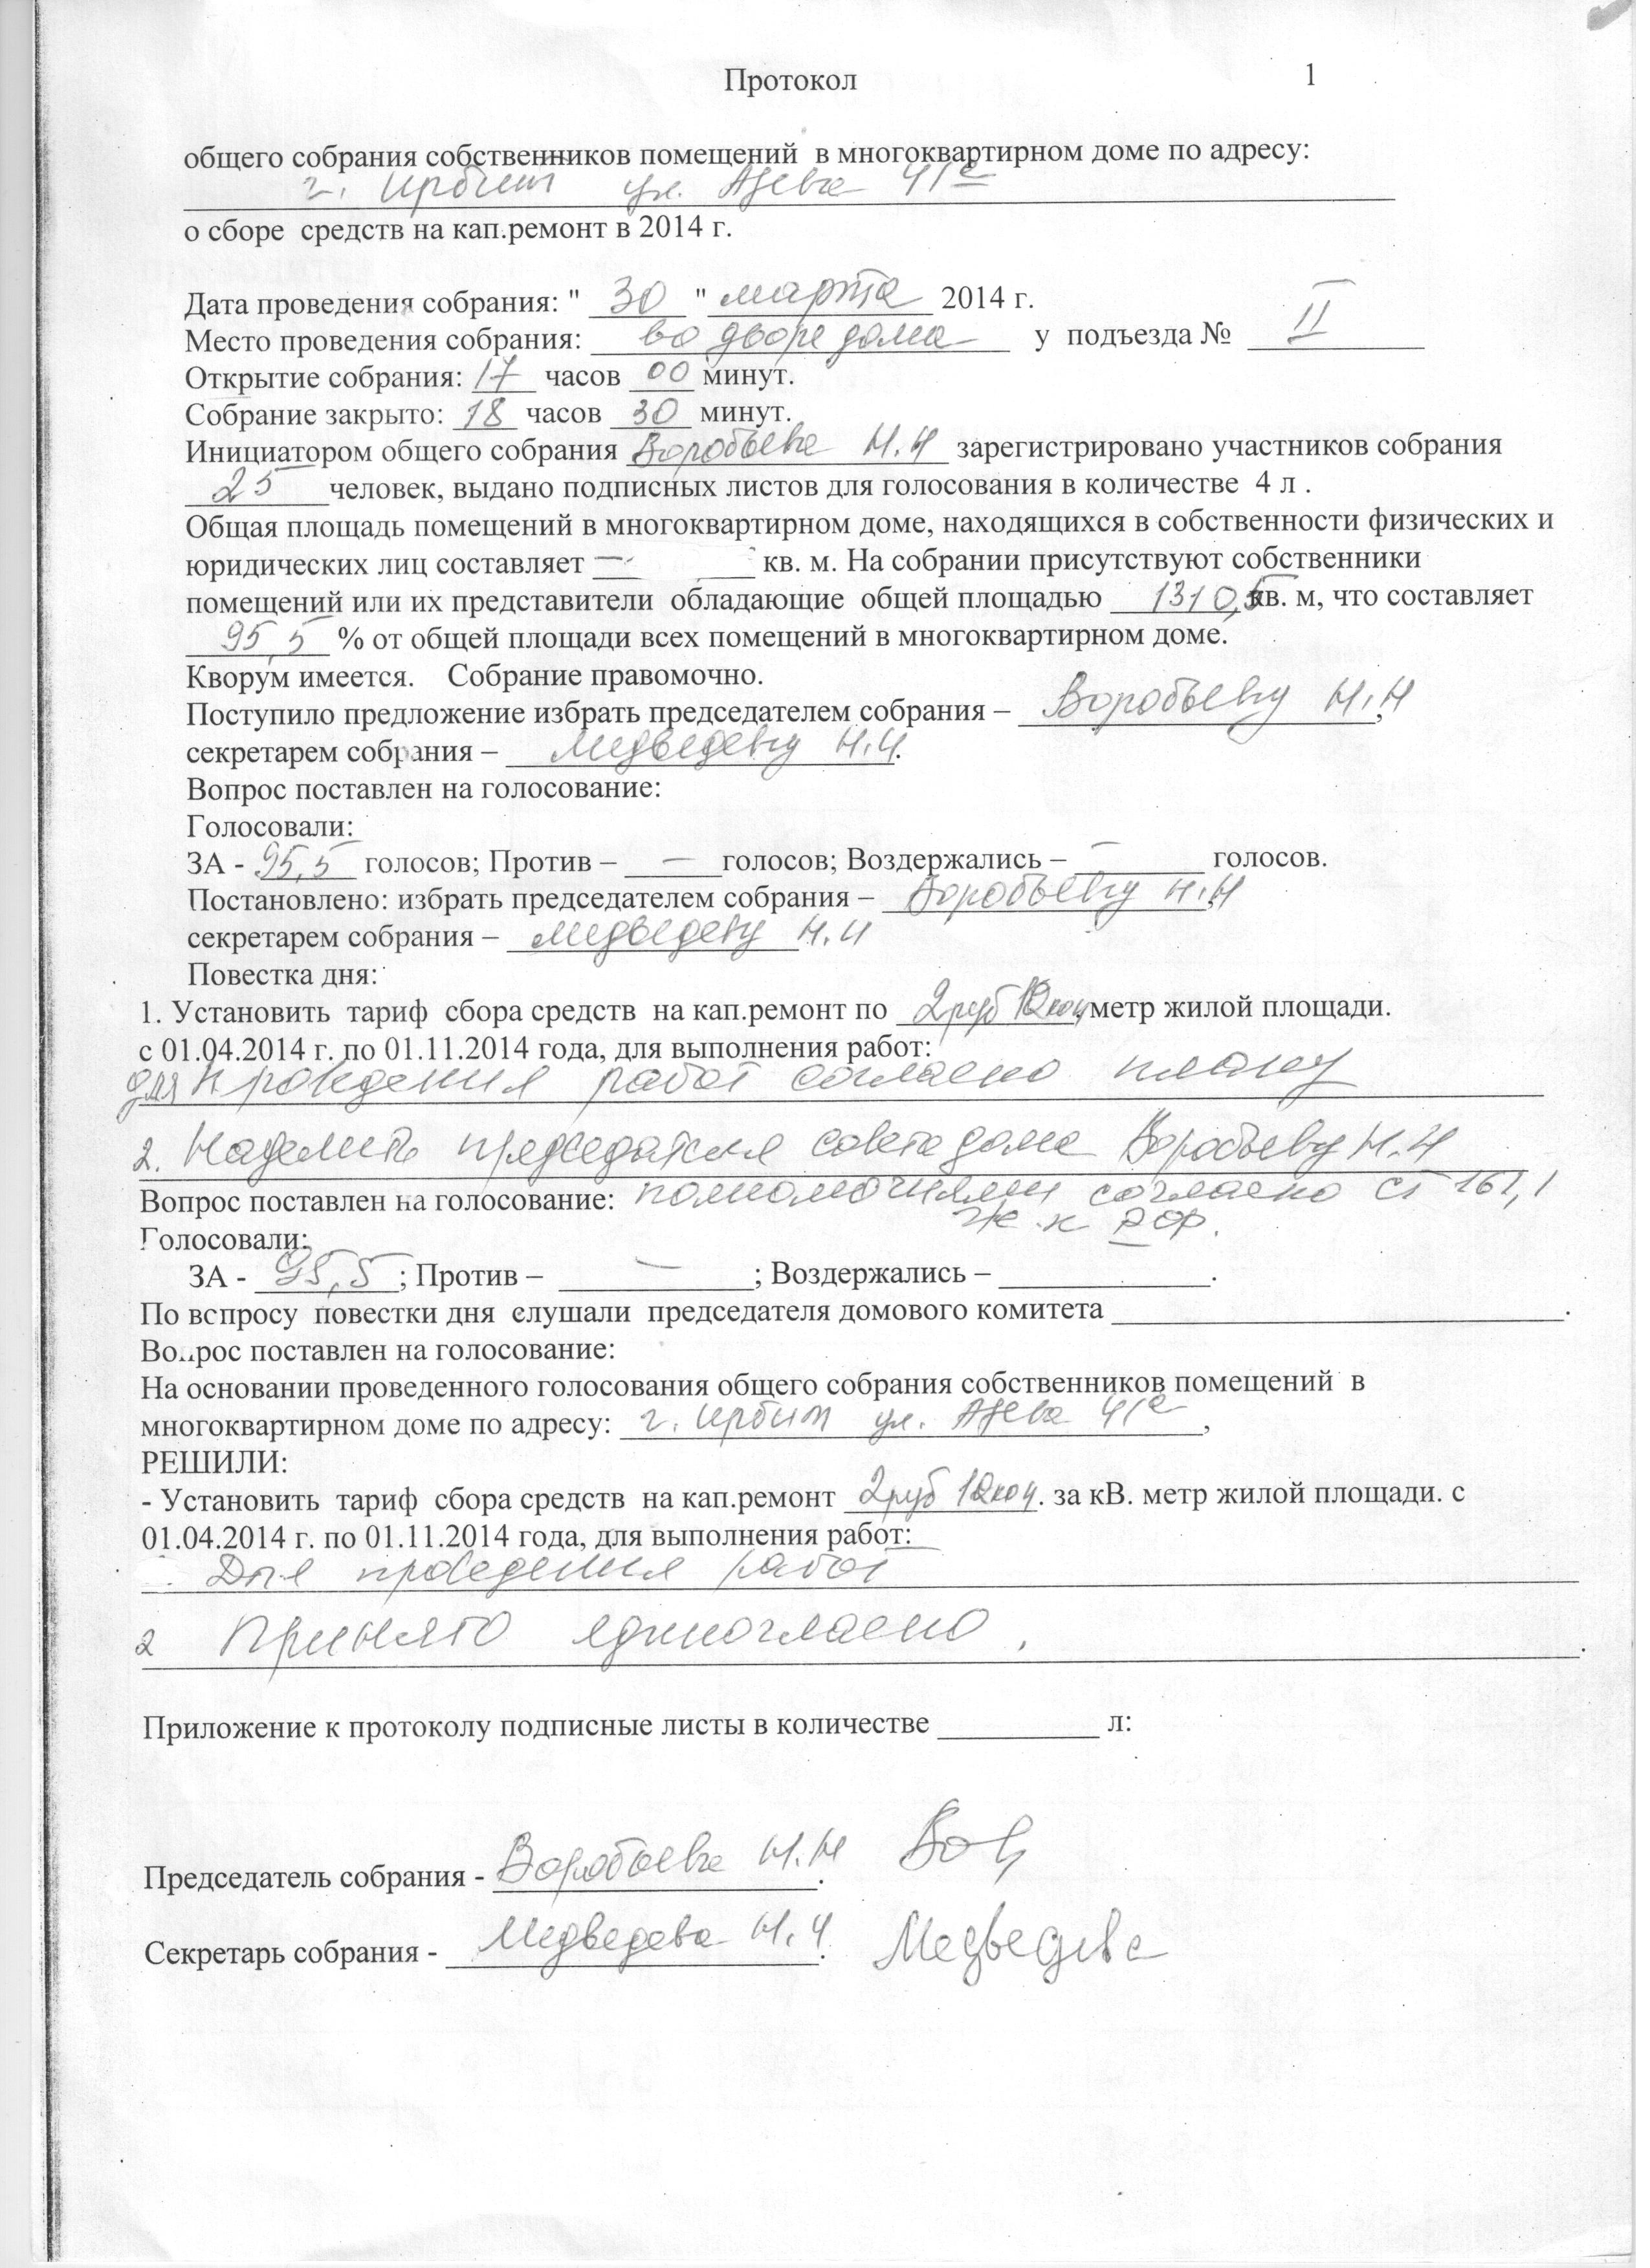 Протокол
1
общего собрания собственников помещений в многоквартирном доме по адресу:
г. Ирбит ул. Азева 41а
о сборе средств на кап.ремонт в 2014 г.
Дата проведения собрания: " 30 " марта 2014 г.
Место проведения собрания: во дворе дома у подъезда № II
Открытие собрания: 17 часов 00 минут.
Собрание закрыто: 18 часов 30 минут.
Инициатором общего собрания Воробьева Н.Н зарегистрировано участников собрания
25 человек, выдано подписных листов для голосования в количестве 4 л .
Общая площадь помещений в многоквартирном доме, находящихся в собственности физических и
юридических лиц составляет — кв. м. На собрании присутствуют собственники
помещений или их представители обладающие общей площадью 1310,5 кв. м, что составляет
95,5 % от общей площади всех помещений в многоквартирном доме.
Кворум имеется. Собрание правомочно.
Поступило предложение избрать председателем собрания – Воробьеву Н.Н,
секретарем собрания – Медведеву Н.И.
Вопрос поставлен на голосование:
Голосовали:
ЗА - 95,5 голосов; Против – — голосов; Воздержались – — голосов.
Постановлено: избрать председателем собрания – Воробьеву Н.Н,
секретарем собрания – Медведеву Н.И
Повестка дня:
1. Установить тариф сбора средств на кап.ремонт по 2руб коп метр жилой площади.
с 01.04.2014 г. по 01.11.2014 года, для выполнения работ:
для проведения работ согласно плану
2. Наделить председателя совета дома Воробьеву Н.Н
Вопрос поставлен на голосование: полномочиями согласно ст 161,1
Ж.К РФ.
Голосовали:
ЗА - 95,5; Против – —; Воздержались – .
По вопросу повестки дня слушали председателя домового комитета .
Вопрос поставлен на голосование:
На основании проведенного голосования общего собрания собственников помещений в
многоквартирном доме по адресу: г. Ирбит ул. Азева 41а,
РЕШИЛИ:
- Установить тариф сбора средств на кап.ремонт 2руб коп. за кВ. метр жилой площади. с
01.04.2014 г. по 01.11.2014 года, для выполнения работ:
Для проведения работ
2 Принято единогласно.
Приложение к протоколу подписные листы в количестве л:
Председатель собрания - Воробьева Н.Н.
Секретарь собрания - Медведева Н.И. Медведева